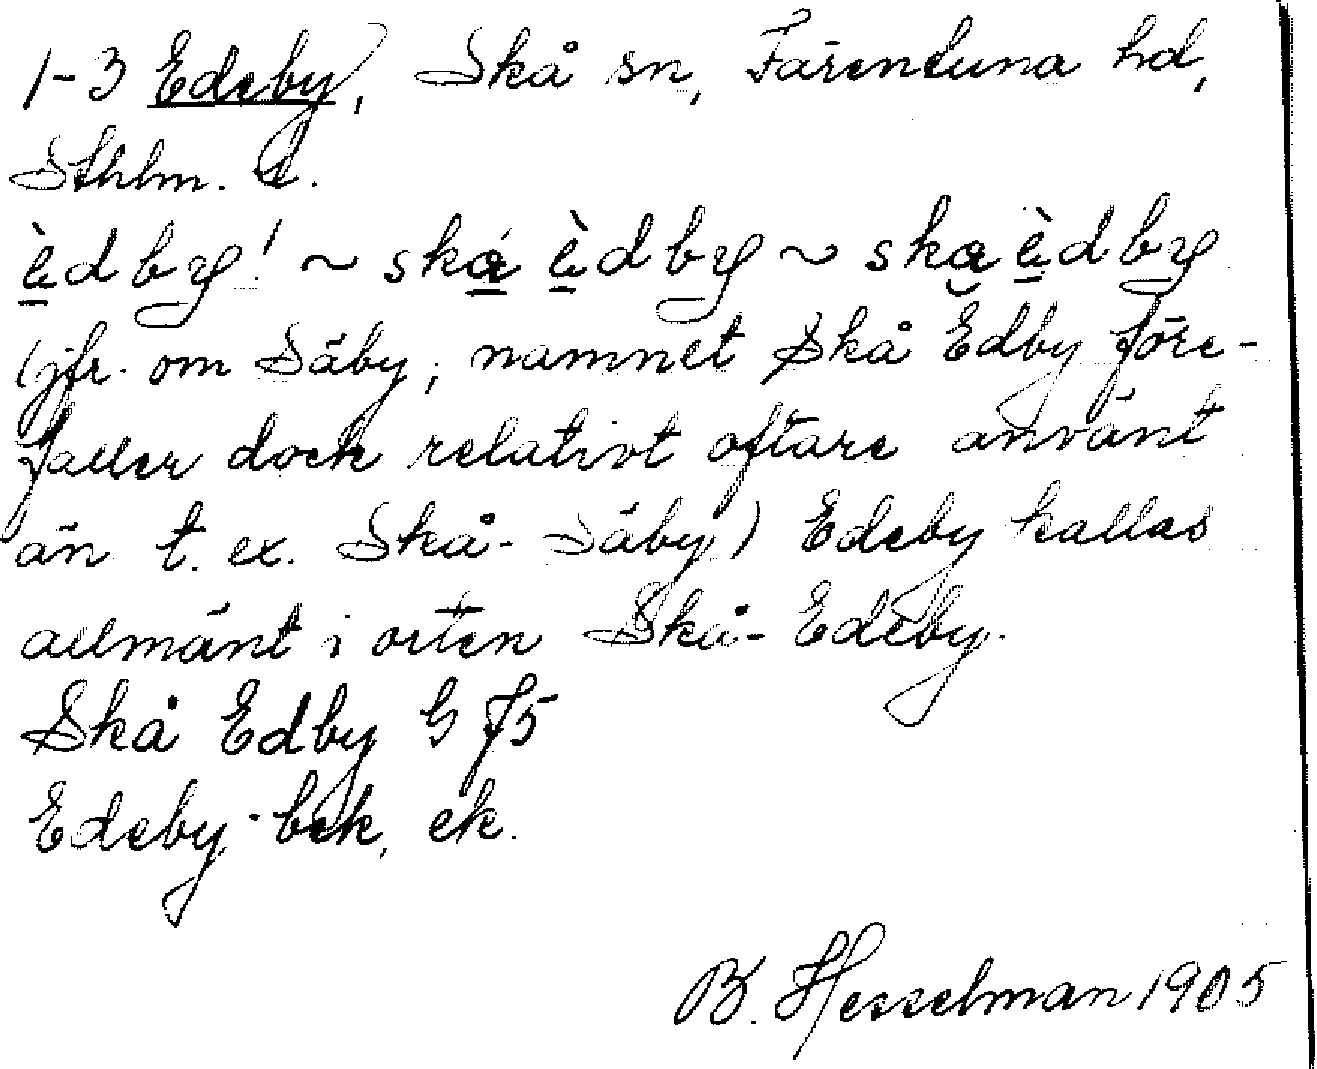 1-3 Edeby, Skå sn, Färentuna hd,
Sthlm. l.
è̱dby! ~ská̱ è̱dby ~ skα̮ è̱dby
(jfr. om Säby; namnet Skå Edby före-
faller dock relativt oftare använt
än t. ex. Skå-Säby) Edeby kallas
allmänt i orten Skå-Edeby.
Skå Edby G J5
Edeby-bek, ek.
B. Hesselman 1905